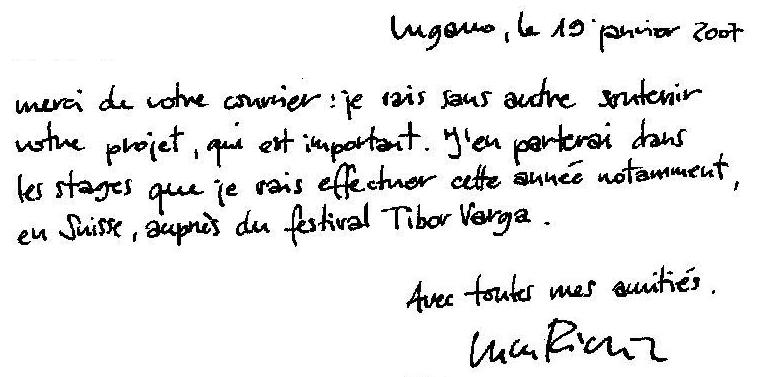 Lugano, le 19 janvier 2007
merci de votre courrier : je vais sans autre soutenir
votre projet, qui est important. J'en parlerai dans
les stages que je vais effectuer cette année notamment,
en Suisse, auprès du festival Tibor Varga.
Avec toutes mes amitiés.